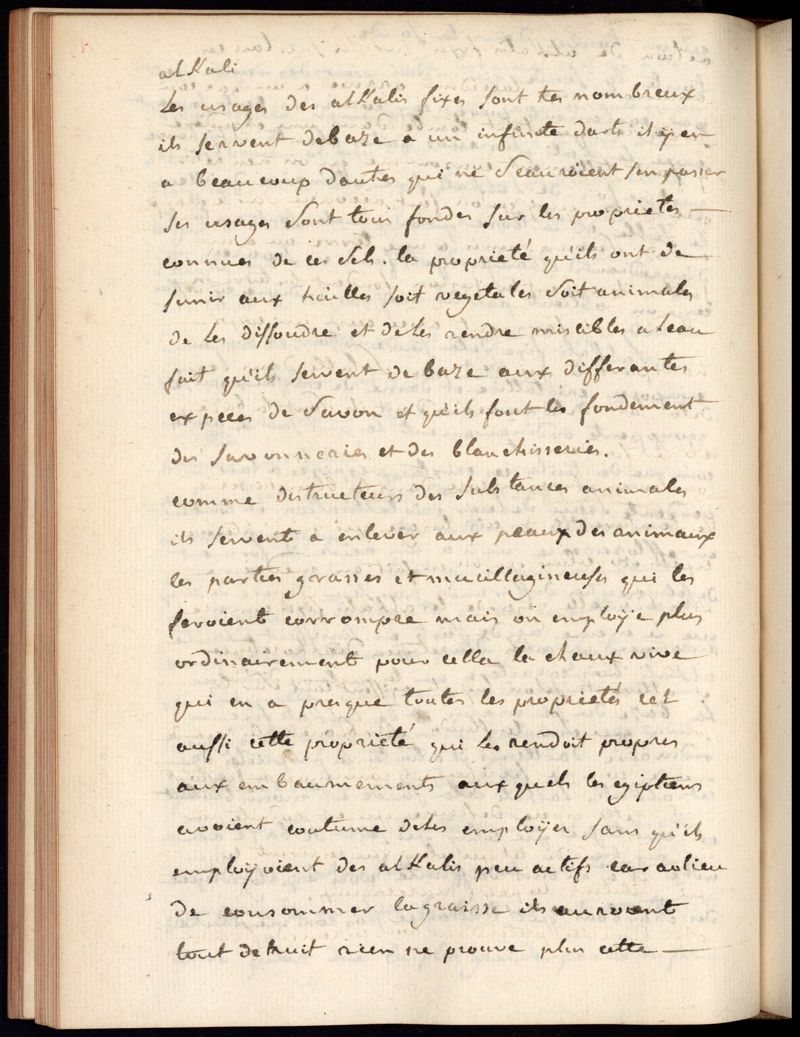 alKali
Les usages des alKalis fixes sont tes nombreux
ils servent debaze a un infinite darts il y en
a beaucoup dautes qui ne Seauroient sen passer
ses usages Sont tous fondes sur les proprietes
connues de ces Sels. la propriete quils ont de
sunir aux huilles soit vegetales Soit animales
de les dissoudre et deles rendre miscibles aleau
fait qu'ils servent de baze aux differantes
expeces de Savon et quils font les fondement
des savonneries et des blanchisseries.
comme destructeurs des Substances animales
ils servent a enlever aux peaux des animaux
les parties grasses et mucillagineuses qui les
feroient corrompre mais on employe plus
ordinairement pour cella la chaux vive
qui en a presque toutes les proprietés cet
aussi cette proprieté qui les rendoit propres
aux embaumements aux quels les egiptiens
avoient coutume deles employer sans qu'ils
employoient des alKalis peu actifs car aulieu
de consommer la graisse ils auroient
tout detruit rien ne prouve plus cette